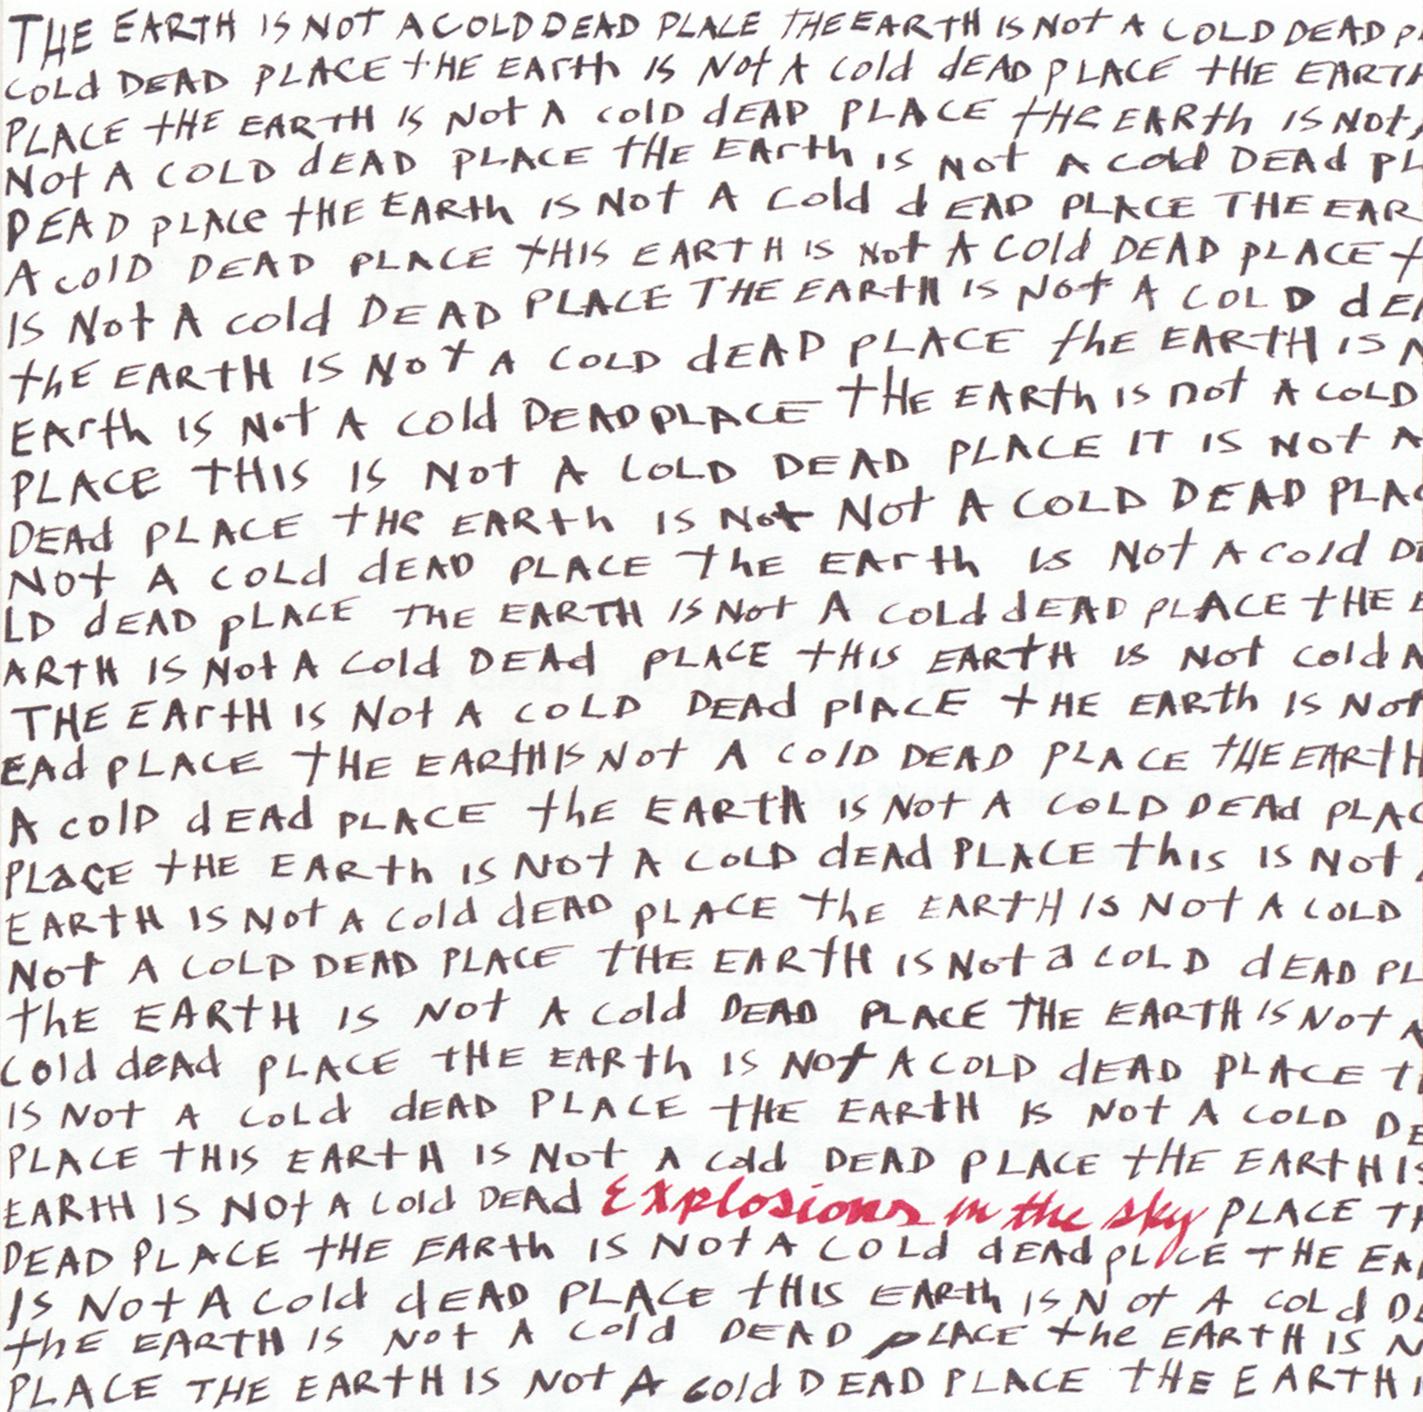 THE EARTH IS NOT A COLD DEAD PLACE THE EARTH IS NOT A COLD DEAD PL
COLd DEAD PLACE tHE EArth IS Not A cold dEAD PLACE tHE EARTH
PLACE tHE EARTH IS Not A cold dEAD PLACE tHe EARth IS Not A
Not A COLD dEAD PLACE tHE EArth is Not A cold DEAd PL
DEAD pLACe tHE EARth IS Not A Cold dEAD PLACE THE EAR
A colD DEAD PLACE tHIS EARTH IS Not A Cold DEAD pLACE t
IS Not A cold DEAD PLACE THE EARtH IS Not A COLD dEA
thE EARtH IS Not A COLD dEAD PLACE thE EARtH IS N
EArth IS Not A cold DEAD PLACE tHE EARth IS not A COLD
PLACE tHIS IS Not A COLD DEAD PLACE IT IS Not A
DEAd PLACE tHe EARth IS Not Not A COLD DEAD PLAC
Not A COLd dEAD PLACE thE EArth Is Not A cold DE
LD dEAD pLACE THE EARTH IS Not A Cold dEAD PLACE tHE E
ARTH IS Not A Cold DEAd PLACE tHIS EARtH IS Not Cold A
THE EArtH IS Not A COLD DEAd plACE tHE EARth IS Not
EAd PLACE tHE EARtH IS Not A colD DEAD PLACE tHE EARtH
A colD dEAd PLACE thE EARtH IS Not A COLD DEAd PLAC
PLaCE tHE EARth IS Not A COLD dEAd PLACE this IS Not A
EARtH IS Not A Cold dEAD PLACE thE EARtH IS Not A COLD
Not A COLD DEAD PLACE tHE EARtH IS Not a COLD dEAD PL
thE EARtH IS Not A Cold DEAD PLACE THE EARTH IS Not A
Cold deAd PLACE tHE EARth IS Not A COLD dEAD PLACE t
IS Not A COLd dEAD PLACE tHE EARtH IS Not A COLD DE
PLACE tHIS EARtH IS Not A Cold DEAD PLACE tHE EARtH IS
EARtH IS NOt A Cold DEAd Explosions in the sky PLACE TH
DEAD PLACE tHE EARth IS Not A COLd dEAd pLACE THE EA
IS Not A Cold dEAD PLACE tHIS EARth IS Not A COLd DE
thE EARTH IS Not A Cold DEAD pLACE the EARtH IS N
PLACE THE EARtH IS Not A cold DEAD PLACE tHE EARTH I